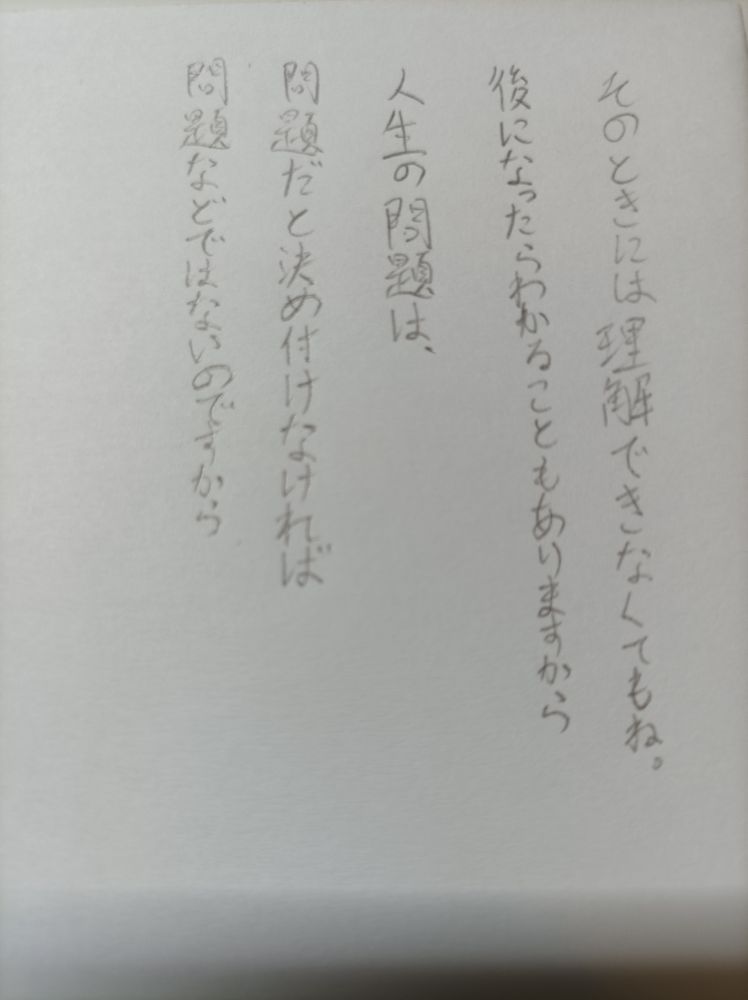 そのときには理解できなくてもね。
後になったらわかることもありますから
人生の問題は、
問題だと決め付けなければ
問題などではないのですから